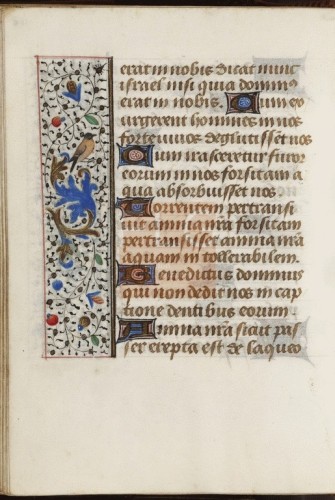 erat in nobis dicat nunc
israel nisi quia dominus
erat in nobis. Cum ex
urgerent homines in nos
forte vivos deglutissent nos
Cum irasceretur furor
eorum in nos forsitam a
qua absorbuisset nos.
Torrentem pertransi
uit anima nr̃a forsitam
pertransisset anima nr̃a
aquam in tollerabilem.
Benedictus dominus
qui non dedit nos in cap
tione dentibus eorum.
Anima nr̃a sicut pas
ser erepta est de laqueo